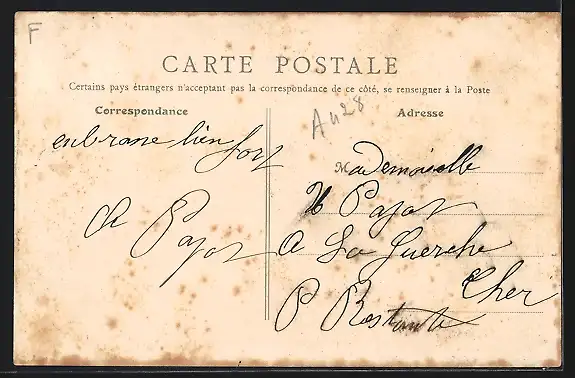 F
CARTE POSTALE
Certains pays étrangers n'acceptant pas la correspondance de ce côté, se renseigner à la Poste
Correspondance
Adresse
A428
enbrasse bien
fort
Pajot
Mademoiselle
Pajot
A La Guerche
Cher
P Restante